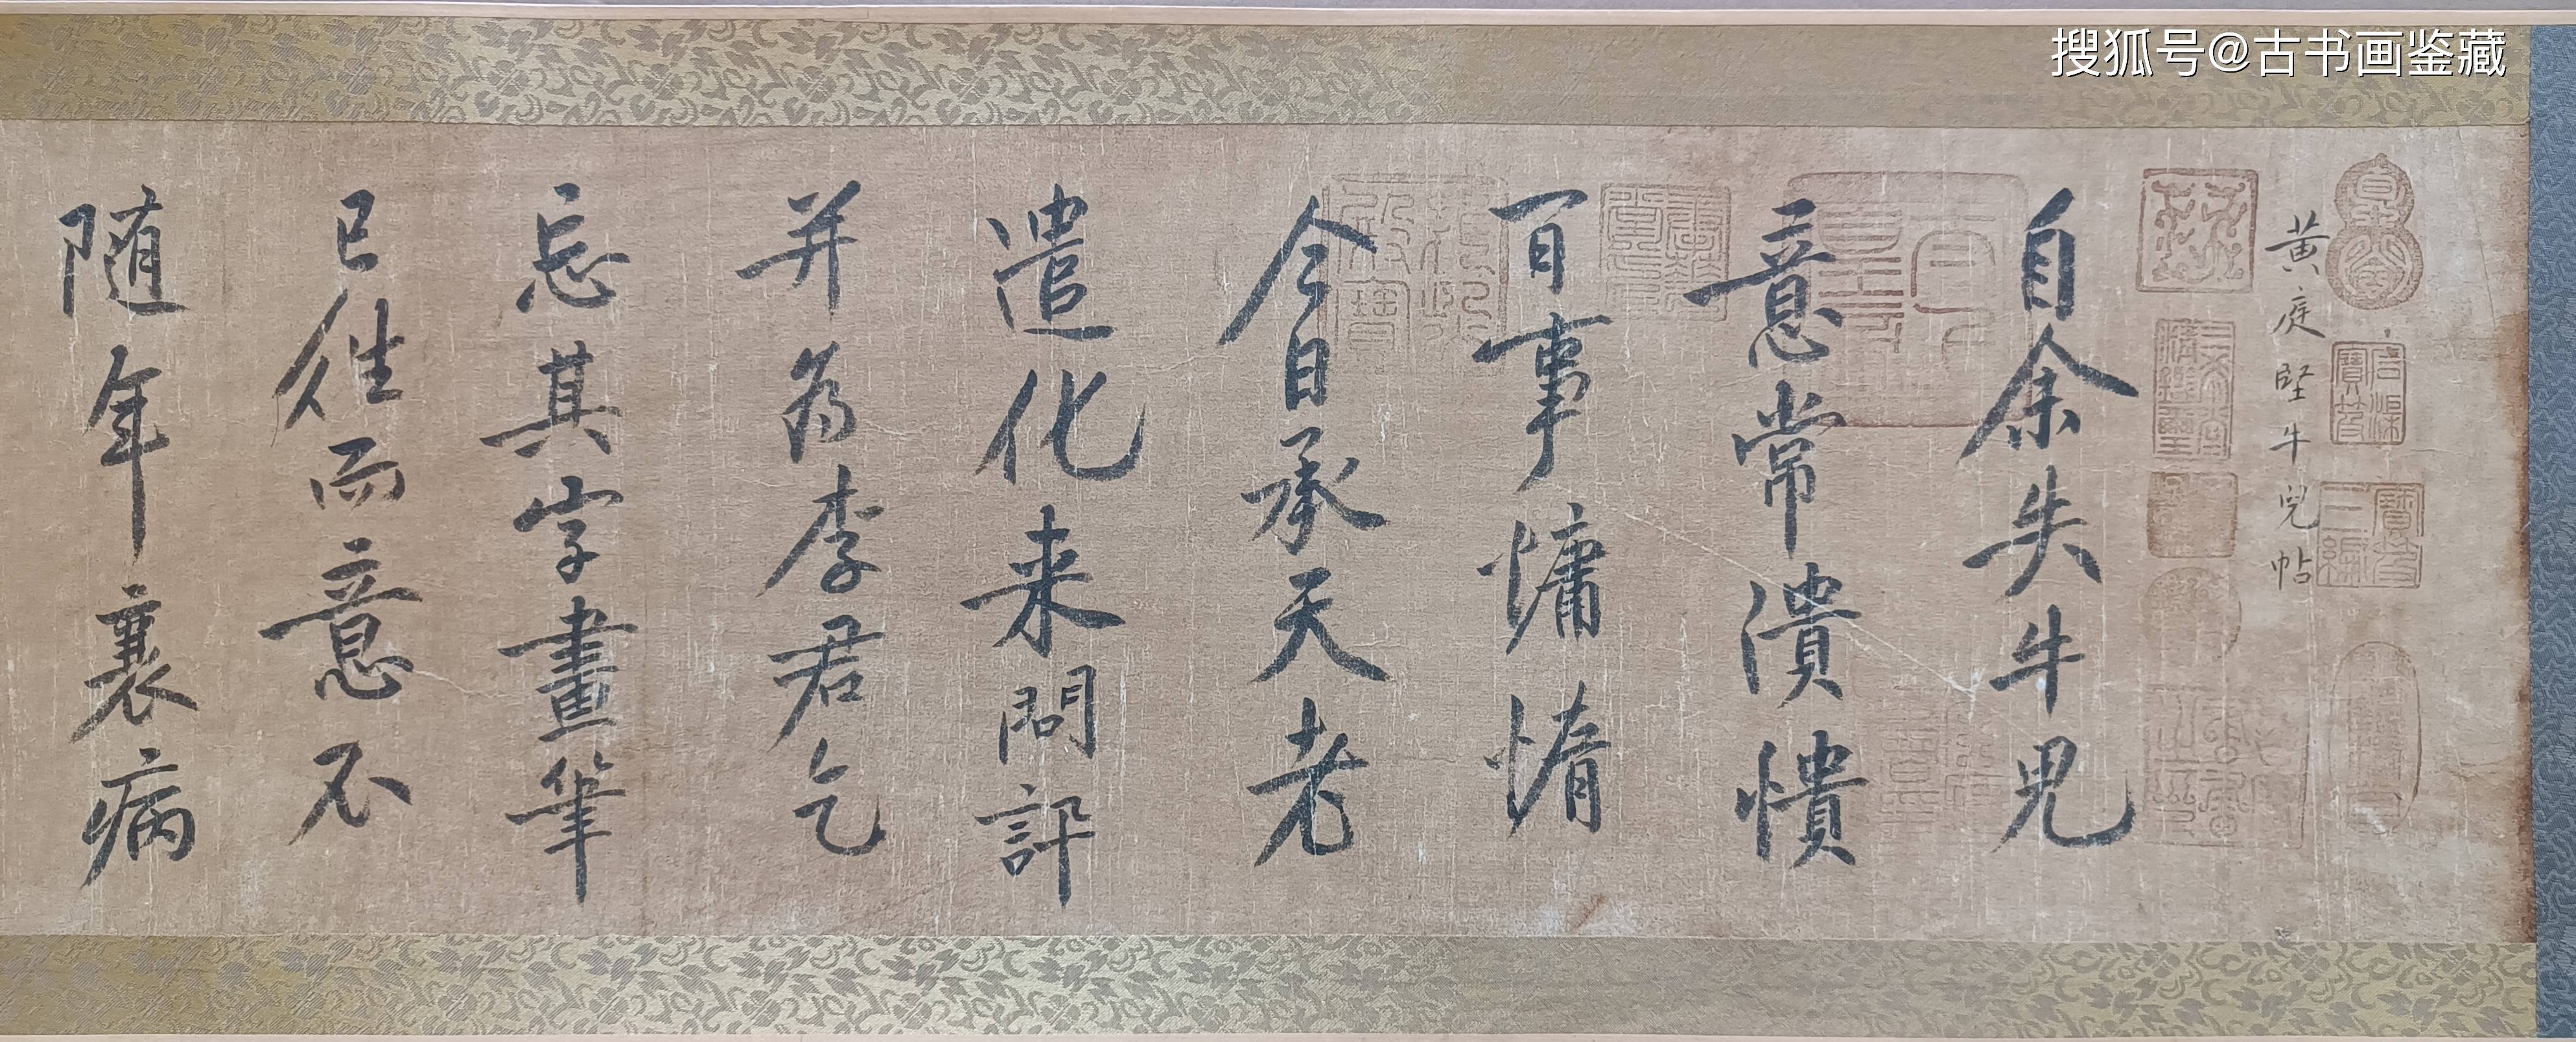 搜狐号@古书画鉴藏
黄庭坚牛児帖
自余失牛児
意常溃愦
百事慵惰
今日承天老
遣化来問訊
并为李君乞
忘其字畫筆
已往而意不
随年衰病